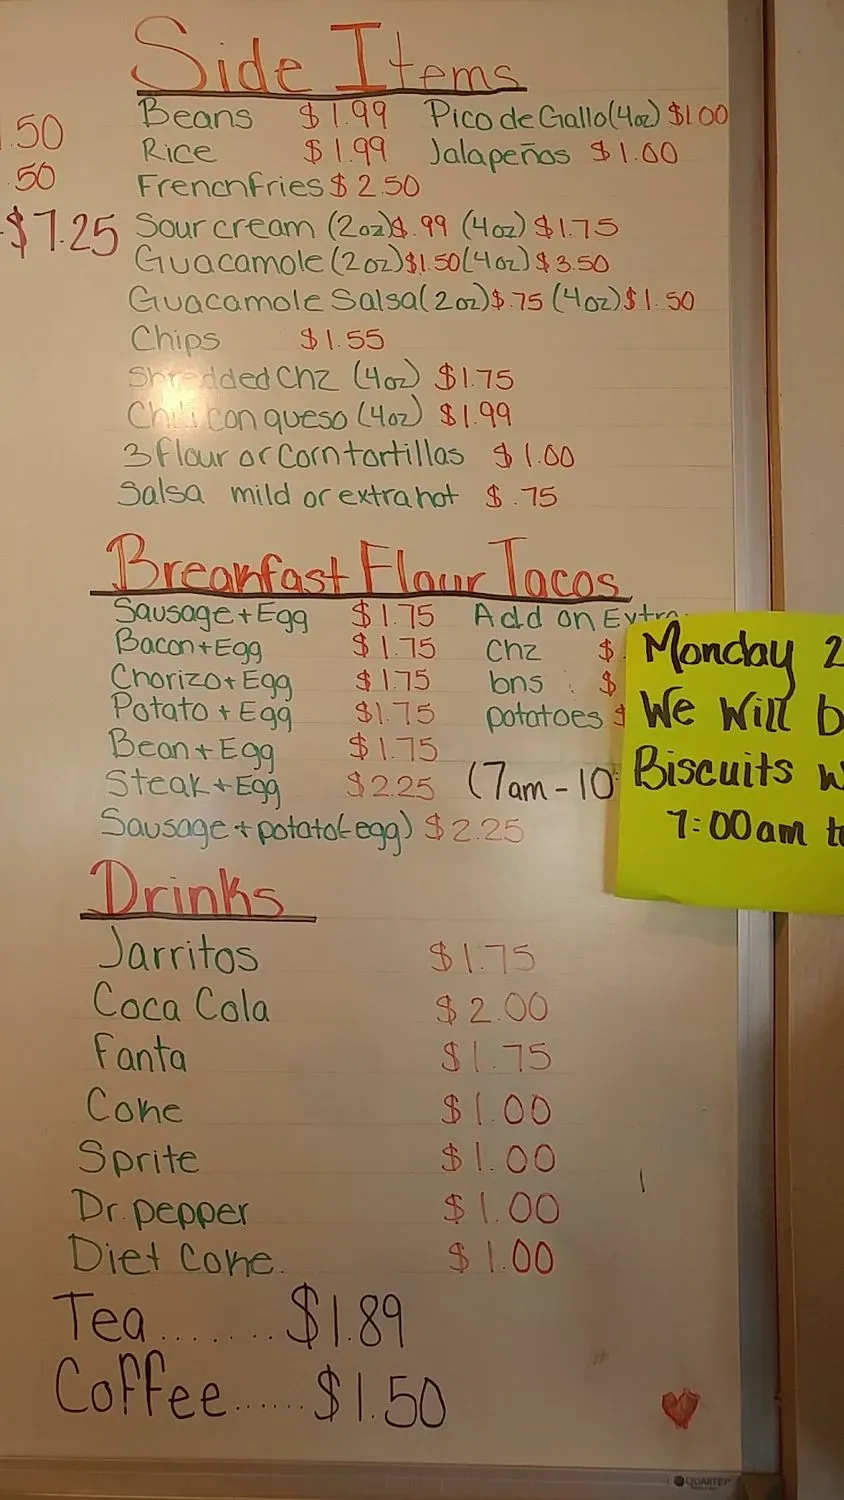 Side Items
Beans $1.99 Pico de Gallo (4oz) $1.00
.50
Rice $1.99 Jalapeños $1.00
.50
French Fries $2.50
$7.25
Sour cream (2oz) $.99 (4oz) $1.75
Guacamole (2oz) $1.50 (4oz) $3.50
Guacamole Salsa (2oz) $.75 (4oz) $1.50
Chips $1.55
Shredded Chz (4oz) $1.75
Chili con queso (4oz) $1.99
3 Flour or Corn tortillas $1.00
Salsa mild or extra hot $.75
Breakfast Flour Tacos
Sausage + Egg $1.75 Add on Extra
Bacon + Egg $1.75 Chz $
Chorizo + Egg $1.75 bns $
Potato + Egg $1.75 potatoes $
Bean + Egg $1.75
Steak + Egg $2.25 (7am - 10
Sausage + potato (-egg) $2.25
Monday 2
We Will b
Biscuits w
7:00am to
Drinks
Jarritos $1.75
Coca Cola $2.00
Fanta $1.75
Coke $1.00
Sprite $1.00
Dr. pepper $1.00
Diet Coke. $1.00
Tea....... $1.89
Coffee...... $1.50
QUARTET